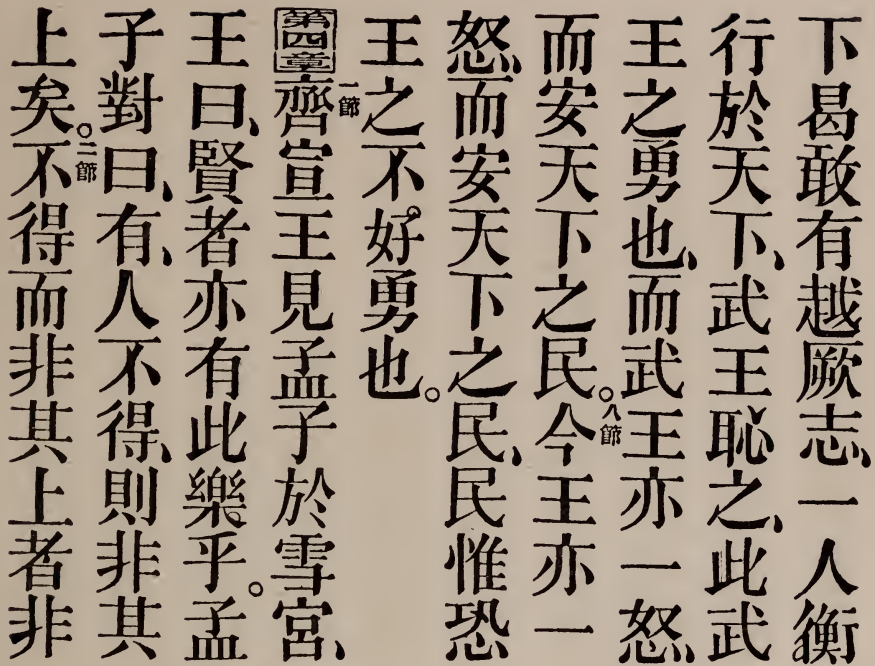 下曷敢有越厥志、一人衡
行於天下、武王恥之、此武
王之勇也、而武王亦一怒、
而安天下之民。八節今王亦一
怒、而安天下之民、民惟恐
王之不好勇也。
第四章一節齊宣王見孟子於雪宮、
王曰、賢者亦有此樂乎。孟
子對曰、有、人不得、則非其
上矣。二節不得而非其上者非